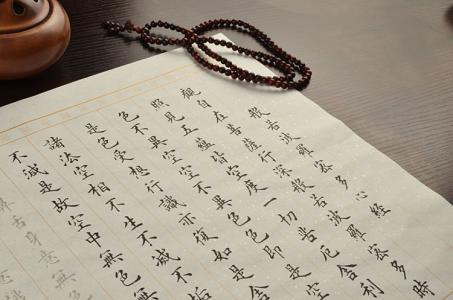 般若波羅蜜多心經
觀自在菩薩行深般若波羅蜜多時
照見五蘊皆空度一切苦厄舍利
色不異空空不異色色即是
是色受想行識亦復如是舍
諸法空相不生不滅不垢
不減是故空中無色無
舌身意無